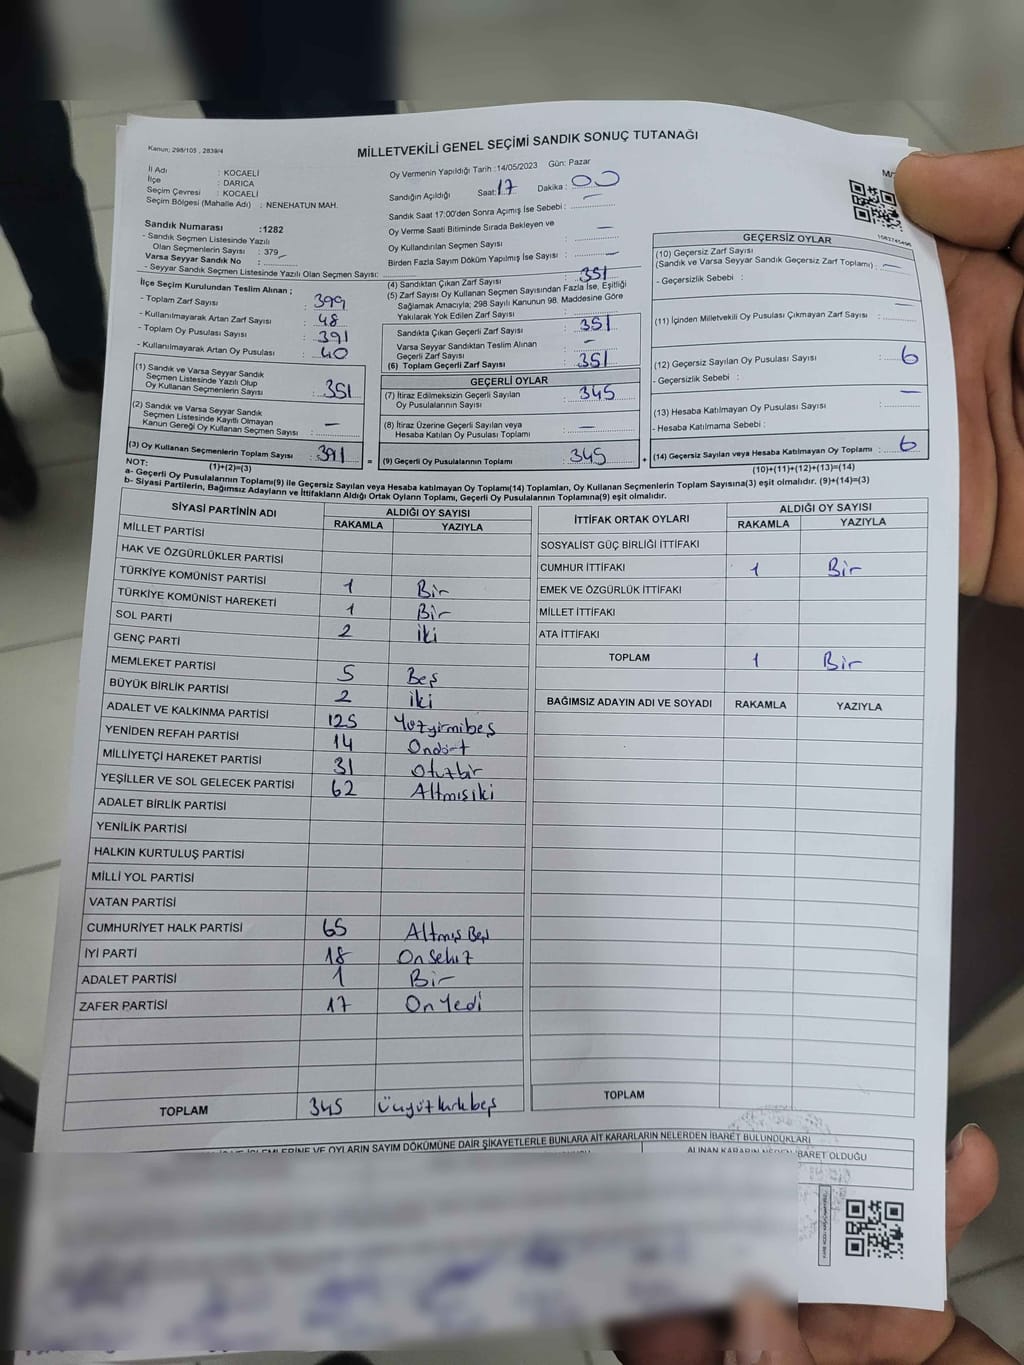 Kanun; 298/105 , 2839/4
MİLLETVEKİLİ GENEL SEÇİMİ SANDIK SONUÇ TUTANAĞI
İl Adı : KOCAELİ
İlçe : DARICA
Seçim Çevresi : KOCAELİ
Seçim Bölgesi (Mahalle Adı) : NENEHATUN MAH.
Sandık Numarası :1282
- Sandık Seçmen Listesinde Yazılı
Olan Seçmenlerin Sayısı : 379
Varsa Seyyar Sandık No :
- Seyyar Sandık Seçmen Listesinde Yazılı Olan Seçmen Sayısı:
Oy Vermenin Yapıldığı Tarih :14/05/2023 Gün: Pazar
Sandığın Açıldığı Saat: 17 Dakika : 00
Sandık Saat 17:00'den Sonra Açılmış İse Sebebi : —
Oy Verme Saati Bitiminde Sırada Bekleyen ve
Oy Kullandırılan Seçmen Sayısı : —
Birden Fazla Sayım Döküm Yapılmış İse Sayısı : —
İlçe Seçim Kurulundan Teslim Alınan ;
- Toplam Zarf Sayısı : 399
- Kullanılmayarak Artan Zarf Sayısı : 48
- Toplam Oy Pusulası Sayısı : 391
- Kullanılmayarak Artan Oy Pusulası : 40
(1) Sandık ve Varsa Seyyar Sandık
Seçmen Listesinde Yazılı Olup
Oy Kullanan Seçmenlerin Sayısı : 351
(2) Sandık ve Varsa Seyyar Sandık
Seçmen Listesinde Kayıtlı Olmayan
Kanun Gereği Oy Kullanan Seçmen Sayısı : —
(3) Oy Kullanan Seçmenlerin Toplam Sayısı : 391
(1)+(2)=(3)
(4) Sandıktan Çıkan Zarf Sayısı : 351
(5) Zarf Sayısı Oy Kullanan Seçmen Sayısından Fazla İse, Eşitliği
Sağlamak Amacıyla; 298 Sayılı Kanunun 98. Maddesine Göre
Yakılarak Yok Edilen Zarf Sayısı :
Sandıkta Çıkan Geçerli Zarf Sayısı : 351
Varsa Seyyar Sandıktan Teslim Alınan
Geçerli Zarf Sayısı : —
(6) Toplam Geçerli Zarf Sayısı : 351
GEÇERLİ OYLAR
(7) İtiraz Edilmeksizin Geçerli Sayılan
Oy Pusulalarının Sayısı : 345
(8) İtiraz Üzerine Geçerli Sayılan veya
Hesaba Katılan Oy Pusulası Toplamı : —
= (9) Geçerli Oy Pusulalarının Toplamı : 345
GEÇERSİZ OYLAR
(10) Geçersiz Zarf Sayısı
(Sandık ve Varsa Seyyar Sandık Geçersiz Zarf Toplamı) : —
- Geçersizlik Sebebi :
(11) İçinden Milletvekili Oy Pusulası Çıkmayan Zarf Sayısı :
(12) Geçersiz Sayılan Oy Pusulası Sayısı : 6
- Geçersizlik Sebebi :
(13) Hesaba Katılmayan Oy Pusulası Sayısı : —
- Hesaba Katılmama Sebebi :
+ (14) Geçersiz Sayılan veya Hesaba Katılmayan Oy Toplamı : 6
(10)+(11)+(12)+(13)=(14)
NOT:
a- Geçerli Oy Pusulalarının Toplamı(9) ile Geçersiz Sayılan veya Hesaba katılmayan Oy Toplamı(14) Toplamları, Oy Kullanan Seçmenlerin Toplam Sayısına(3) eşit olmalıdır. (9)+(14)=(3)
b- Siyasi Partilerin, Bağımsız Adayların ve İttifakların Aldığı Ortak Oyların Toplamı, Geçerli Oy Pusulalarının Toplamına(9) eşit olmalıdır.
SİYASİ PARTİNİN ADI ALDIĞI OY SAYISI
RAKAMLA YAZIYLA
MİLLET PARTİSİ
HAK VE ÖZGÜRLÜKLER PARTİSİ
TÜRKİYE KOMÜNİST PARTİSİ 1 Bir
TÜRKİYE KOMÜNİST HAREKETİ 1 Bir
SOL PARTİ 2 iki
GENÇ PARTİ
MEMLEKET PARTİSİ 5 Beş
BÜYÜK BİRLİK PARTİSİ 2 iki
ADALET VE KALKINMA PARTİSİ 125 Yüzyirmibeş
YENİDEN REFAH PARTİSİ 14 Ondört
MİLLİYETÇİ HAREKET PARTİSİ 31 Otuzbir
YEŞİLLER VE SOL GELECEK PARTİSİ 62 Altmışiki
ADALET BİRLİK PARTİSİ
YENİLİK PARTİSİ
HALKIN KURTULUŞ PARTİSİ
MİLLİ YOL PARTİSİ
VATAN PARTİSİ
CUMHURİYET HALK PARTİSİ 65 Altmış Beş
İYİ PARTİ 18 On Sekiz
ADALET PARTİSİ 1 Bir
ZAFER PARTİSİ 17 On Yedi
TOPLAM 345 Üçyüzkırkbeş
İTTİFAK ORTAK OYLARI ALDIĞI OY SAYISI
RAKAMLA YAZIYLA
SOSYALİST GÜÇ BİRLİĞİ İTTİFAKI
CUMHUR İTTİFAKI 1 Bir
EMEK VE ÖZGÜRLÜK İTTİFAKI
MİLLET İTTİFAKI
ATA İTTİFAKI
TOPLAM 1 Bir
BAĞIMSIZ ADAYIN ADI VE SOYADI RAKAMLA YAZIYLA
TOPLAM
VE OYLARIN SAYIM DÖKÜMÜNE DAİR ŞİKAYETLERLE BUNLARA AİT KARARLARIN NELERDEN İBARET BULUNDUKLARI
ALINAN KARARIN NEDEN İBARET OLDUĞU